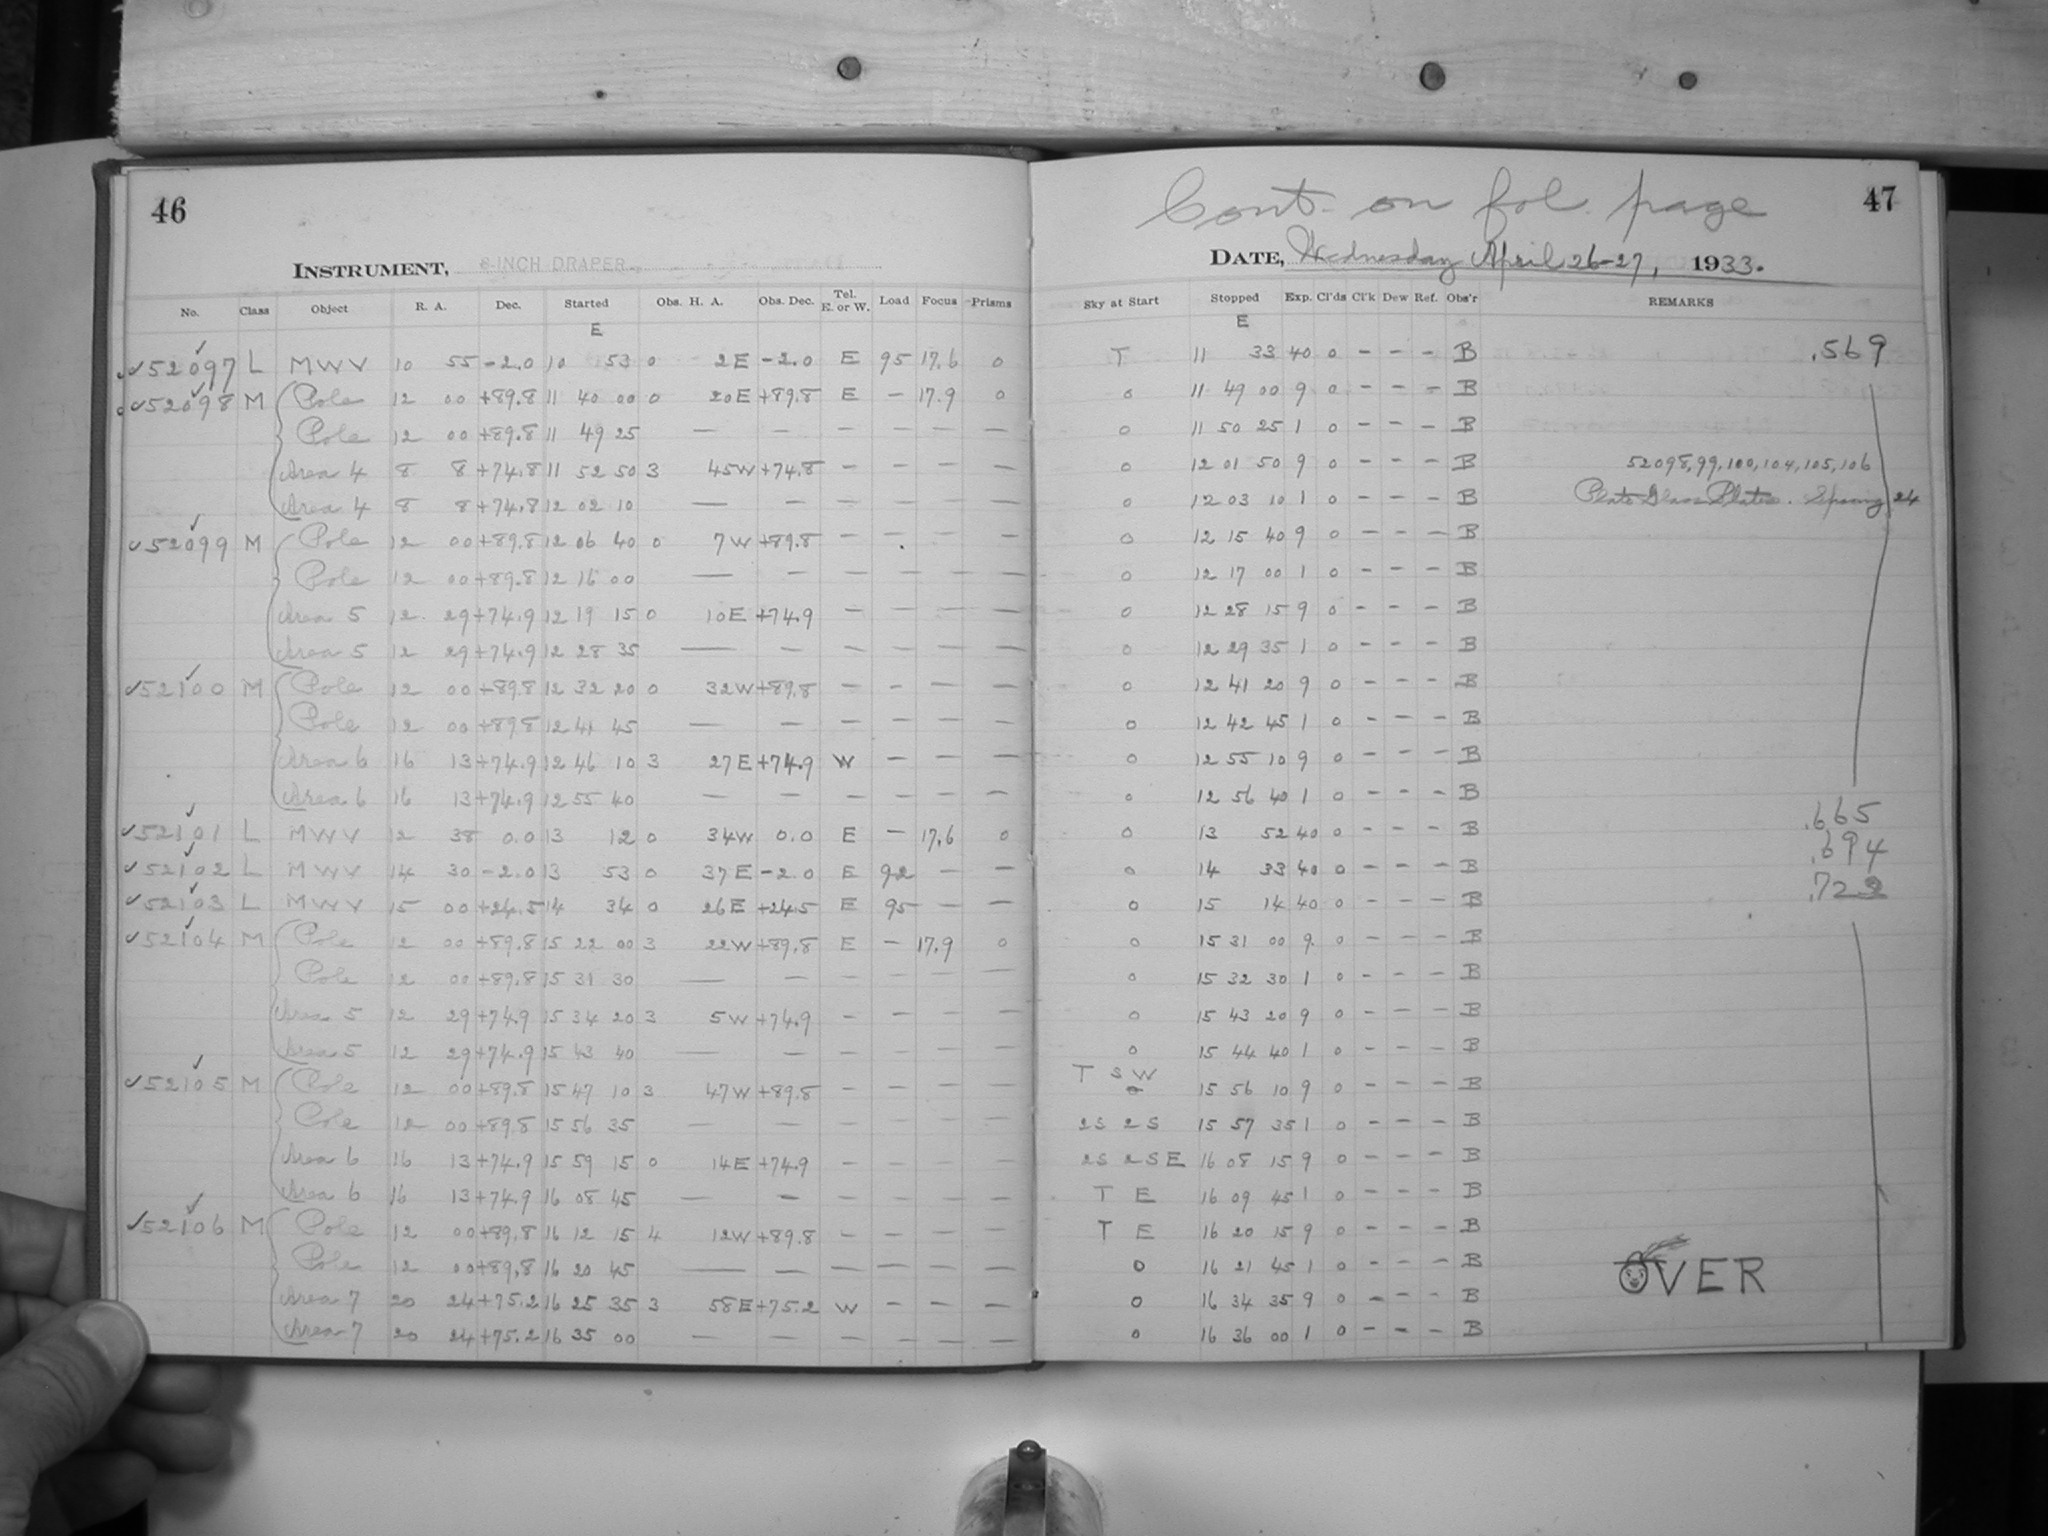 46
Cont. on fol. page 47
INSTRUMENT, 8-INCH DRAPER. DATE, Wednesday April 26-27, 1933.
No. Class Object R. A. Dec. Started Obs. H. A. Obs. Dec. Tel. E. or W. Load Focus Prisms Sky at Start Stopped Exp. Cl'ds Cl'k Dew Ref. Obs'r REMARKS
E E
✓52097 L MWV 10 55 -2.0 10 53 0 2E -2.0 E 95 17.6 0 T 11 33 40 0 - - - B .569
✓52098 M Pole 12 00 +89.8 11 40 00 0 20E +89.8 E - 17.9 0 0 11 49 00 9 0 - - - B
Pole 12 00 +89.8 11 49 25 — — — — — — 0 11 50 25 1 0 - - - B
Area 4 8 8 +74.8 11 52 50 3 45W +74.8 - - - — 0 12 01 50 9 0 - - - B 52098,99,100,104,105,106
Area 4 8 8 +74.8 12 02 10 — — — — — — 0 12 03 10 1 0 - - - B Plate Glass Plates. Spring 24
✓52099 M Pole 12 00 +89.8 12 06 40 0 7W +89.8 - - - — 0 12 15 40 9 0 - - - B
Pole 12 00 +89.8 12 16 00 — — — — — — 0 12 17 00 1 0 - - - B
Area 5 12 29 +74.9 12 19 15 0 10E +74.9 — - - — 0 12 28 15 9 0 - - - B
Area 5 12 29 +74.9 12 28 35 — — — — — — 0 12 29 35 1 0 - - - B
✓52100 M Pole 12 00 +89.8 12 32 20 0 32W +89.8 - - — — 0 12 41 20 9 0 - - - B
Pole 12 00 +89.8 12 41 45 — — — — — — 0 12 42 45 1 0 - - - B
Area 6 16 13 +74.9 12 46 10 3 27E +74.9 W - - — 0 12 55 10 9 0 - - - B
Area 6 16 13 +74.9 12 55 40 — — — — — — 0 12 56 40 1 0 - - - B
✓52101 L MWV 12 38 0.0 13 12 0 34W 0.0 E - 17.6 0 0 13 52 40 0 - - - B .665
✓52102 L MWV 14 30 -2.0 13 53 0 37E -2.0 E 92 - — 0 14 33 40 0 - - - B .694
✓52103 L MWV 15 00 +24.5 14 34 0 26E +24.5 E 95 - — 0 15 14 40 0 - - - B .722
✓52104 M Pole 12 00 +89.8 15 22 00 3 22W +89.8 E - 17.9 0 0 15 31 00 9 0 - - - B
Pole 12 00 +89.8 15 31 30 — — — — — — 0 15 32 30 1 0 - - - B
Area 5 12 29 +74.9 15 34 20 3 5W +74.9 - - - — 0 15 43 20 9 0 - - - B
Area 5 12 29 +74.9 15 43 40 — — — — — — 0 15 44 40 1 0 - - - B
✓52105 M Pole 12 00 +89.8 15 47 10 3 47W +89.8 - - - — T SW 15 56 10 9 0 - - - B
Pole 12 00 +89.8 15 56 35 — — — — — — 2S 2S 15 57 35 1 0 - - - B
Area 6 16 13 +74.9 15 59 15 0 14E +74.9 - - - — 2S 2SE 16 08 15 9 0 - - - B
Area 6 16 13 +74.9 16 08 45 — — — — — — T E 16 09 45 1 0 - - - B
✓52106 M Pole 12 00 +89.8 16 12 15 4 12W +89.8 - - - — T E 16 20 15 9 0 - - - B
Pole 12 00 +89.8 16 20 45 — — — — — — 0 16 21 45 1 0 - - - B OVER
Area 7 20 24 +75.2 16 25 35 3 58E +75.2 W - - — 0 16 34 35 9 0 - - - B
Area 7 20 24 +75.2 16 35 00 — — — — — — 0 16 36 00 1 0 - - - B